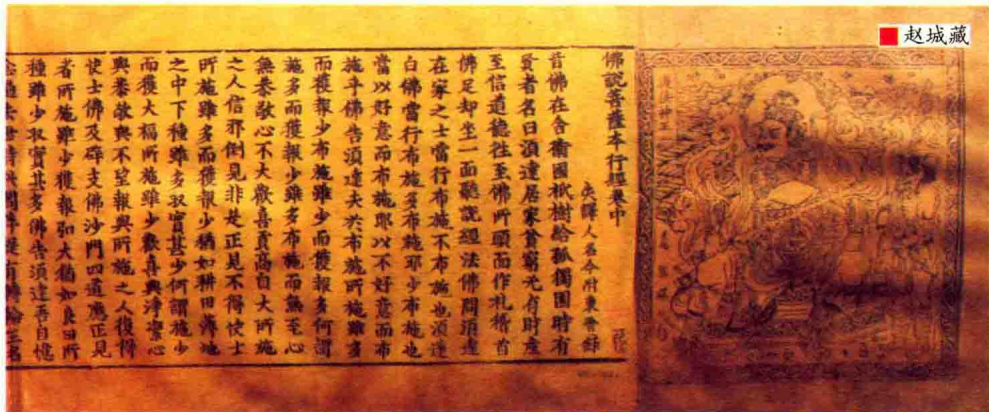 赵城藏
佛說菩薩本行經卷中
失譯人名今附東晉錄
昔佛在舍衛國祇樹給孤獨園時有
賢者名曰須達居家貧窮无有財產
至信道德往至佛所頭面作礼稽首
佛足却坐一面聽說經法佛問須達
在家之士當行布施不布施也須達
白佛當行布施多布施耶少布施也
當以好意而布施耶以不好意而布
施乎佛告須達夫共布施所施雖多
而獲報少布施雖少而獲報多何謂
施多而獲報少雖多布施而無至心
無恭敬心不大歡喜貢高自大所施
之人信邪倒見非是正見不得快士
所施雖多而獲報少猶如耕田薄地
之中下種雖多收實甚少何謂施少
而獲大福所施雖少歡喜與淨潔心
與恭敬與不望報與所施之人復得
快士佛及辟支佛沙門四道應正見
者所施雖少獲報弘大猶如良田所
種雖少收實甚多佛告須達吾自憶